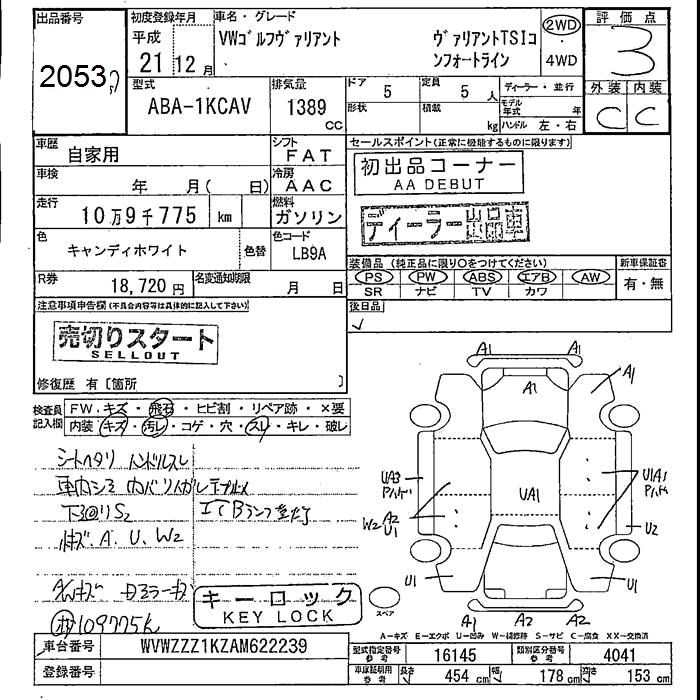 出品番号 初度登録年月 車名・グレード 2WD 評価点
2053 平成 21 12月 VWゴルフヴァリアント ヴァリアントTSIコンフォートライン ・ 4WD 3
型式 排気量 ドア 5 定員 5人 ディーラー・並行 外装 内装
ABA-1KCAV 1389 CC 形状 積載 kg モデル年式 年 ハンドル 左・右 C C
車歴 自家用 シフト FAT セールスポイント(正常に機能するものに限ります)
車検 年 月( 日) 冷房 AAC 初出品コーナー
AA DEBUT
走行 10万9千775 km 燃料 ガソリン ディーラー出品車
色 キャンディホワイト 色替 色コード LB9A
装備品(純正品に限り○をつけてください) 新車保証書
R券 18,720円 名変通知期限 月 日 PS PW ABS エアB AW 有・無
SR ナビ TV カワ
注意事項申告欄(不具合内容等は具体的に記入して下さい) 後日品
売切りスタート
SELLOUT
修復歴 有〔箇所 〕
検査員記入欄 FW.キズ・飛石・ヒビ割・リペア跡・×要
内装(キズ・汚レ・コゲ・穴・スレ・キレ・破レ
シートヘタリ ハンドルスレ
車内シミ
下回りS2 エアBランプ
A、U、W2
キーロック
KEY LOCK
109775K
A1 A1
A1 A1
UA3 UA1 U1A1
W2 A2 U1 U2
U1 U1
スペア A1 A2 A2
A−キズ E−エクボ U−凹み W−補修跡 S−サビ C−腐食 XX−交換済
車台番号 WVWZZZ1KZAM622239 型式指定番号 参考 16145 類別区分番号 参考 4041
登録番号 車庫証明用 参考 長さ 454 cm 幅 178 cm 高さ 153 cm